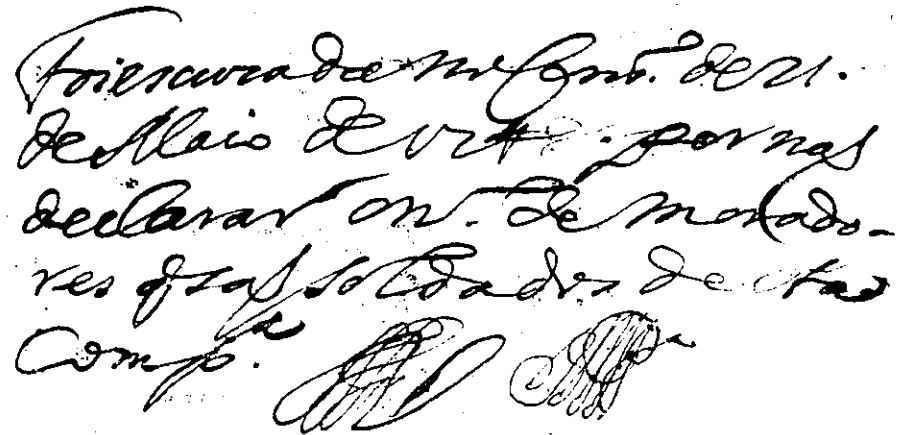 Foi escurada de 21.
de Maio de por nas
declarar on.º de morado-
res q̃ sas soldados desta
Comp.ª